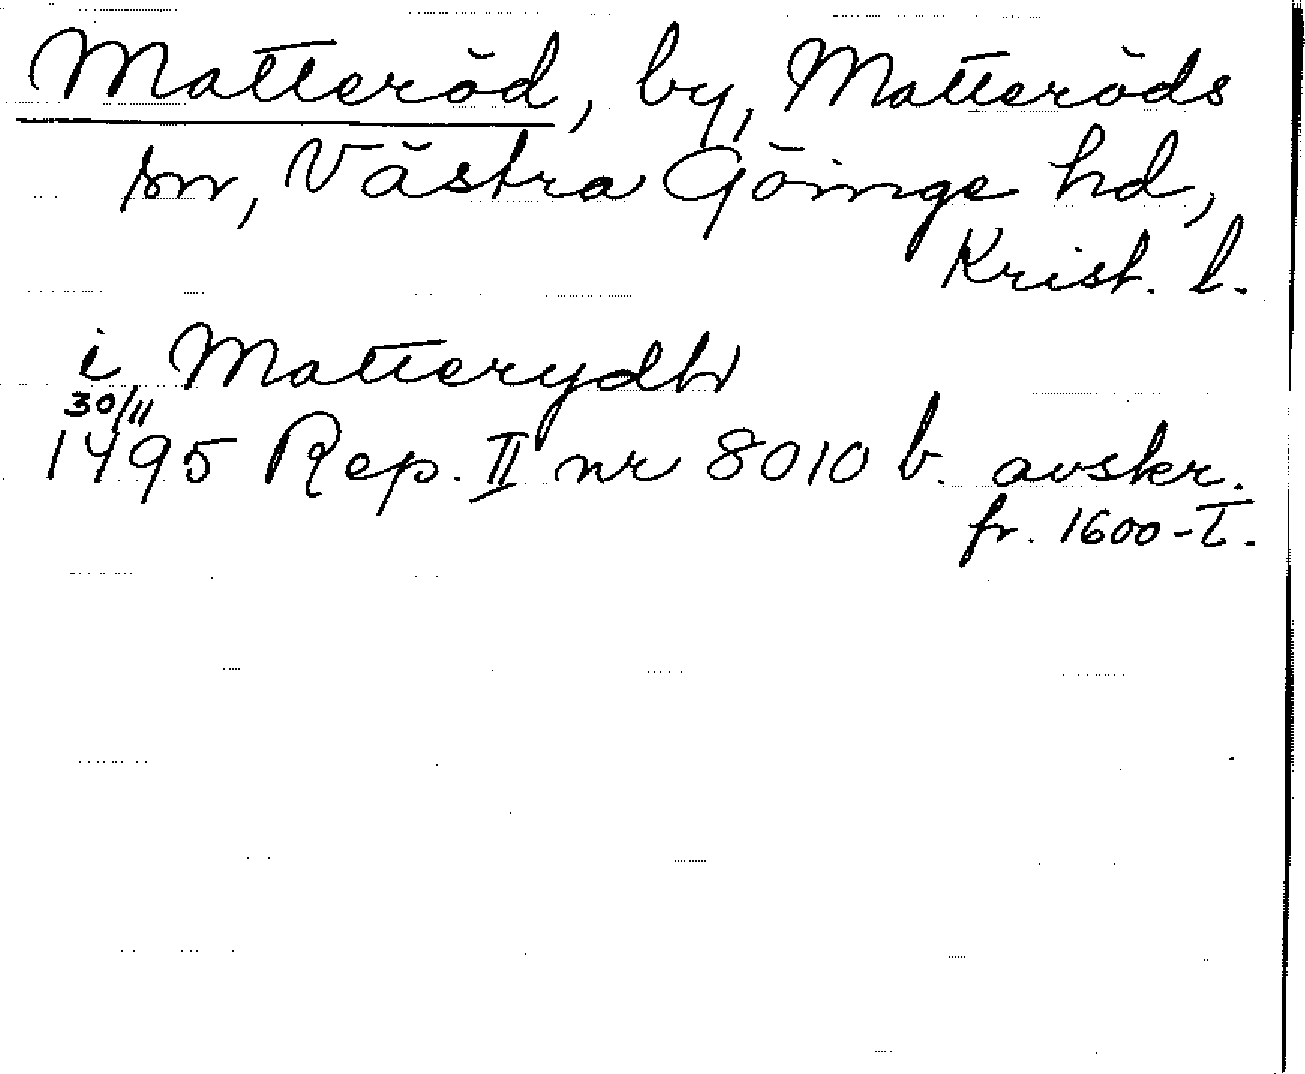 Matteröd, by, Matteröds
sn, Västra Göinge hd,
Krist. l.
i Matterydh
30/11
1495 Rep. II nr 8010 b. avskr.
fr. 1600-t.